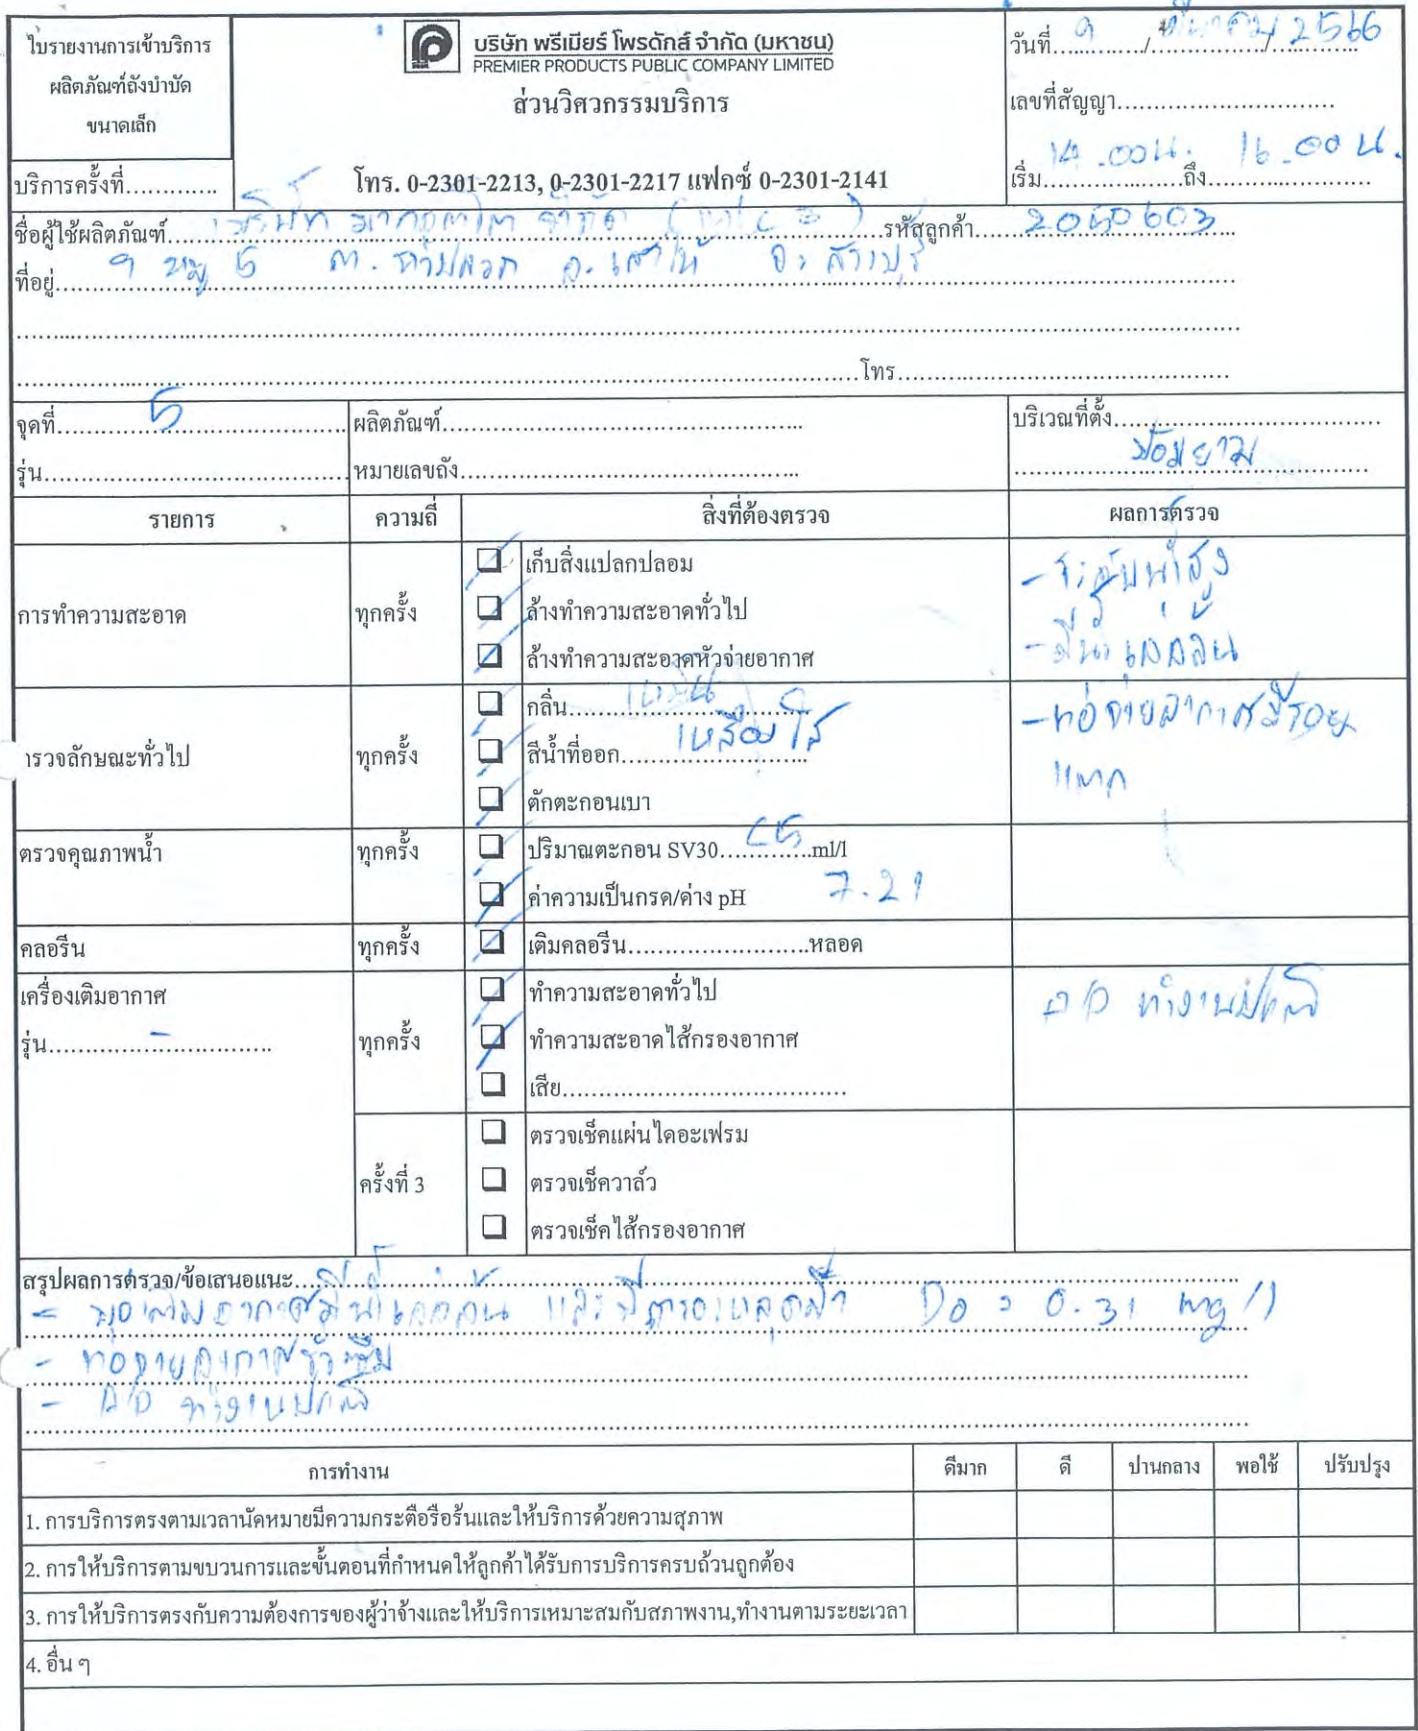 ใบรายงานการเข้าบริการ
ผลิตภัณฑ์ถังบำบัด
ขนาดเล็ก
บริการครั้งที่.............
บริษัท พรีเมียร์ โพรดักส์ จำกัด (มหาชน)
PREMIER PRODUCTS PUBLIC COMPANY LIMITED
ส่วนวิศวกรรมบริการ
โทร. 0-2301-2213, 0-2301-2217 แฟกซ์ 0-2301-2141
วันที่ 9 / มีนาคม / 2566
เลขที่สัญญา..............................
เริ่ม 14.00 น. ถึง 16.00 น.
ชื่อผู้ใช้ผลิตภัณฑ์ บริษัท จำกัด รหัสลูกค้า 2050603
ที่อยู่ 9 หมู่ 5 ต. อ. เสาไห้ จ. สระบุรี
โทร..............................
จุดที่ 5 ผลิตภัณฑ์.............................. บริเวณที่ตั้ง..............................
รุ่น.............................. หมายเลขถัง.............................. ป้อมยาม
รายการ ความถี่ สิ่งที่ต้องตรวจ ผลการตรวจ
การทำความสะอาด ทุกครั้ง
เก็บสิ่งแปลกปลอม
ล้างทำความสะอาดทั่วไป
ล้างทำความสะอาดหัวจ่ายอากาศ
- ระดับน้ำสูง
- มีน้ำเอ่อล้น
ตรวจลักษณะทั่วไป ทุกครั้ง
กลิ่น เหม็น
สีน้ำที่ออก เหลืองใส
ตักตะกอนเบา
- ท่อจ่ายอากาศมีรอย
แตก
ตรวจคุณภาพน้ำ ทุกครั้ง
ปริมาณตะกอน SV30 <5 ml/l
ค่าความเป็นกรด/ด่าง pH 7.21
คลอรีน ทุกครั้ง เติมคลอรีน........................หลอด
เครื่องเติมอากาศ
รุ่น - ทุกครั้ง
ทำความสะอาดทั่วไป
ทำความสะอาดไส้กรองอากาศ
เสีย....................................
A/P ทำงานปกติ
ครั้งที่ 3
ตรวจเช็คแผ่นไดอะเฟรม
ตรวจเช็ควาล์ว
ตรวจเช็คไส้กรองอากาศ
สรุปผลการตรวจ/ข้อเสนอแนะ
- มีน้ำเอ่อล้น และมี DO = 0.31 mg/l
- ท่อจ่ายอากาศรั่วซึม
- A/P ทำงานปกติ
การทำงาน ดีมาก ดี ปานกลาง พอใช้ ปรับปรุง
1. การบริการตรงตามเวลานัดหมายมีความกระตือรือร้นและให้บริการด้วยความสุภาพ
2. การให้บริการตามขบวนการและขั้นตอนที่กำหนดให้ลูกค้าได้รับการบริการครบถ้วนถูกต้อง
3. การให้บริการตรงกับความต้องการของผู้ว่าจ้างและให้บริการเหมาะสมกับสภาพงาน,ทำงานตามระยะเวลา
4. อื่น ๆ